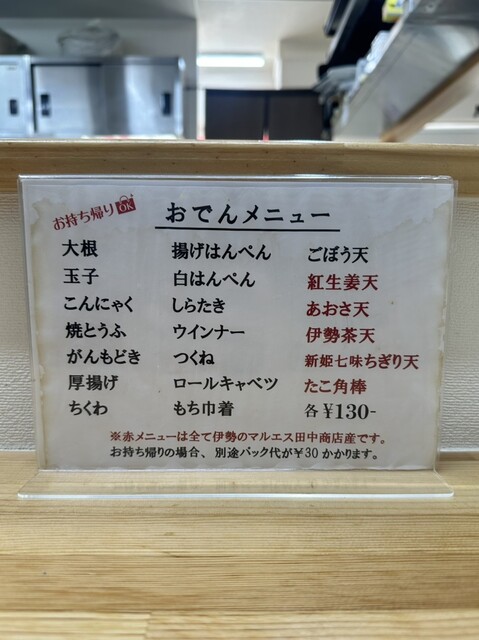 お持ち帰りOK
おでんメニュー
大根
玉子
こんにゃく
焼とうふ
がんもどき
厚揚げ
ちくわ
揚げはんぺん
白はんぺん
しらたき
ウインナー
つくね
ロールキャベツ
もち巾着
ごぼう天
紅生姜天
あおさ天
伊勢茶天
新姫七味ちぎり天
たこ角棒
各¥130-
※赤メニューは全て伊勢のマルエス田中商店産です。
お持ち帰りの場合、別途パック代が¥30かかります。